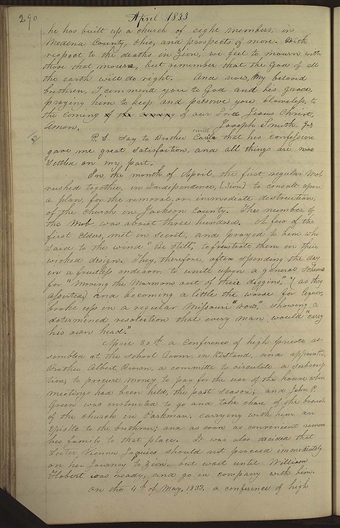 290
April 1833
he has built up a church of eight members, in
Medina County, Ohio, and prospects of more. With
respect to the deaths in Zion, we feel to mourn with
those that mourn, but remember that the God of all
the earth will do right. And now, my beloved
brethren, I commend you to God and his grace,
praying him to keep and preserve you blameless to
the coming of our Lord Jesus Christ,
Amen, Joseph Smith Jr.
P.S. Say to Brother Corrill that his confession
gave me great satisfaction, and all things are now
settled on my part.
In the month of April, the first regular mob
rushed together, in Independence, (Zion) to consult upon
a plan, for the removal, or immediate destruction,
of the church in Jackson County. The number of
the mob was about three hundred. A few of the
first elders, met in secret, and prayed to him who
said to the wind "Be still," to frustrate them in their
wicked design. They, therefore, after spending the day
in a fruitless endeavor to unite upon a general scheme
for "moving the Mormons out of their diggins" (as they
asserted) and becoming a little the worse for liquor
broke up in a regular Missouri "row," showing a
determined resolution that every man would "carry
his own head."
April 30th a conference of high priests as-
sembled at the school room in Kirtland, and appointed
brother a committe to circulate a subscrip-
tion, to procure money to pay for the use of the house where
meetings had been held, the past season; and John P.
Green was instructed to go and take charge of the branch
of the church in Parkman, carrying with him an
epistle to the brethren; and as soon as convenient remove
his family to that place. It was also decided that
Sister Vienna Jaques should not proceed immediately
on her journey to Zion, but wait until William
Hobert was ready, and go in company with him.
On the 4th of May, 1833, a conference of high